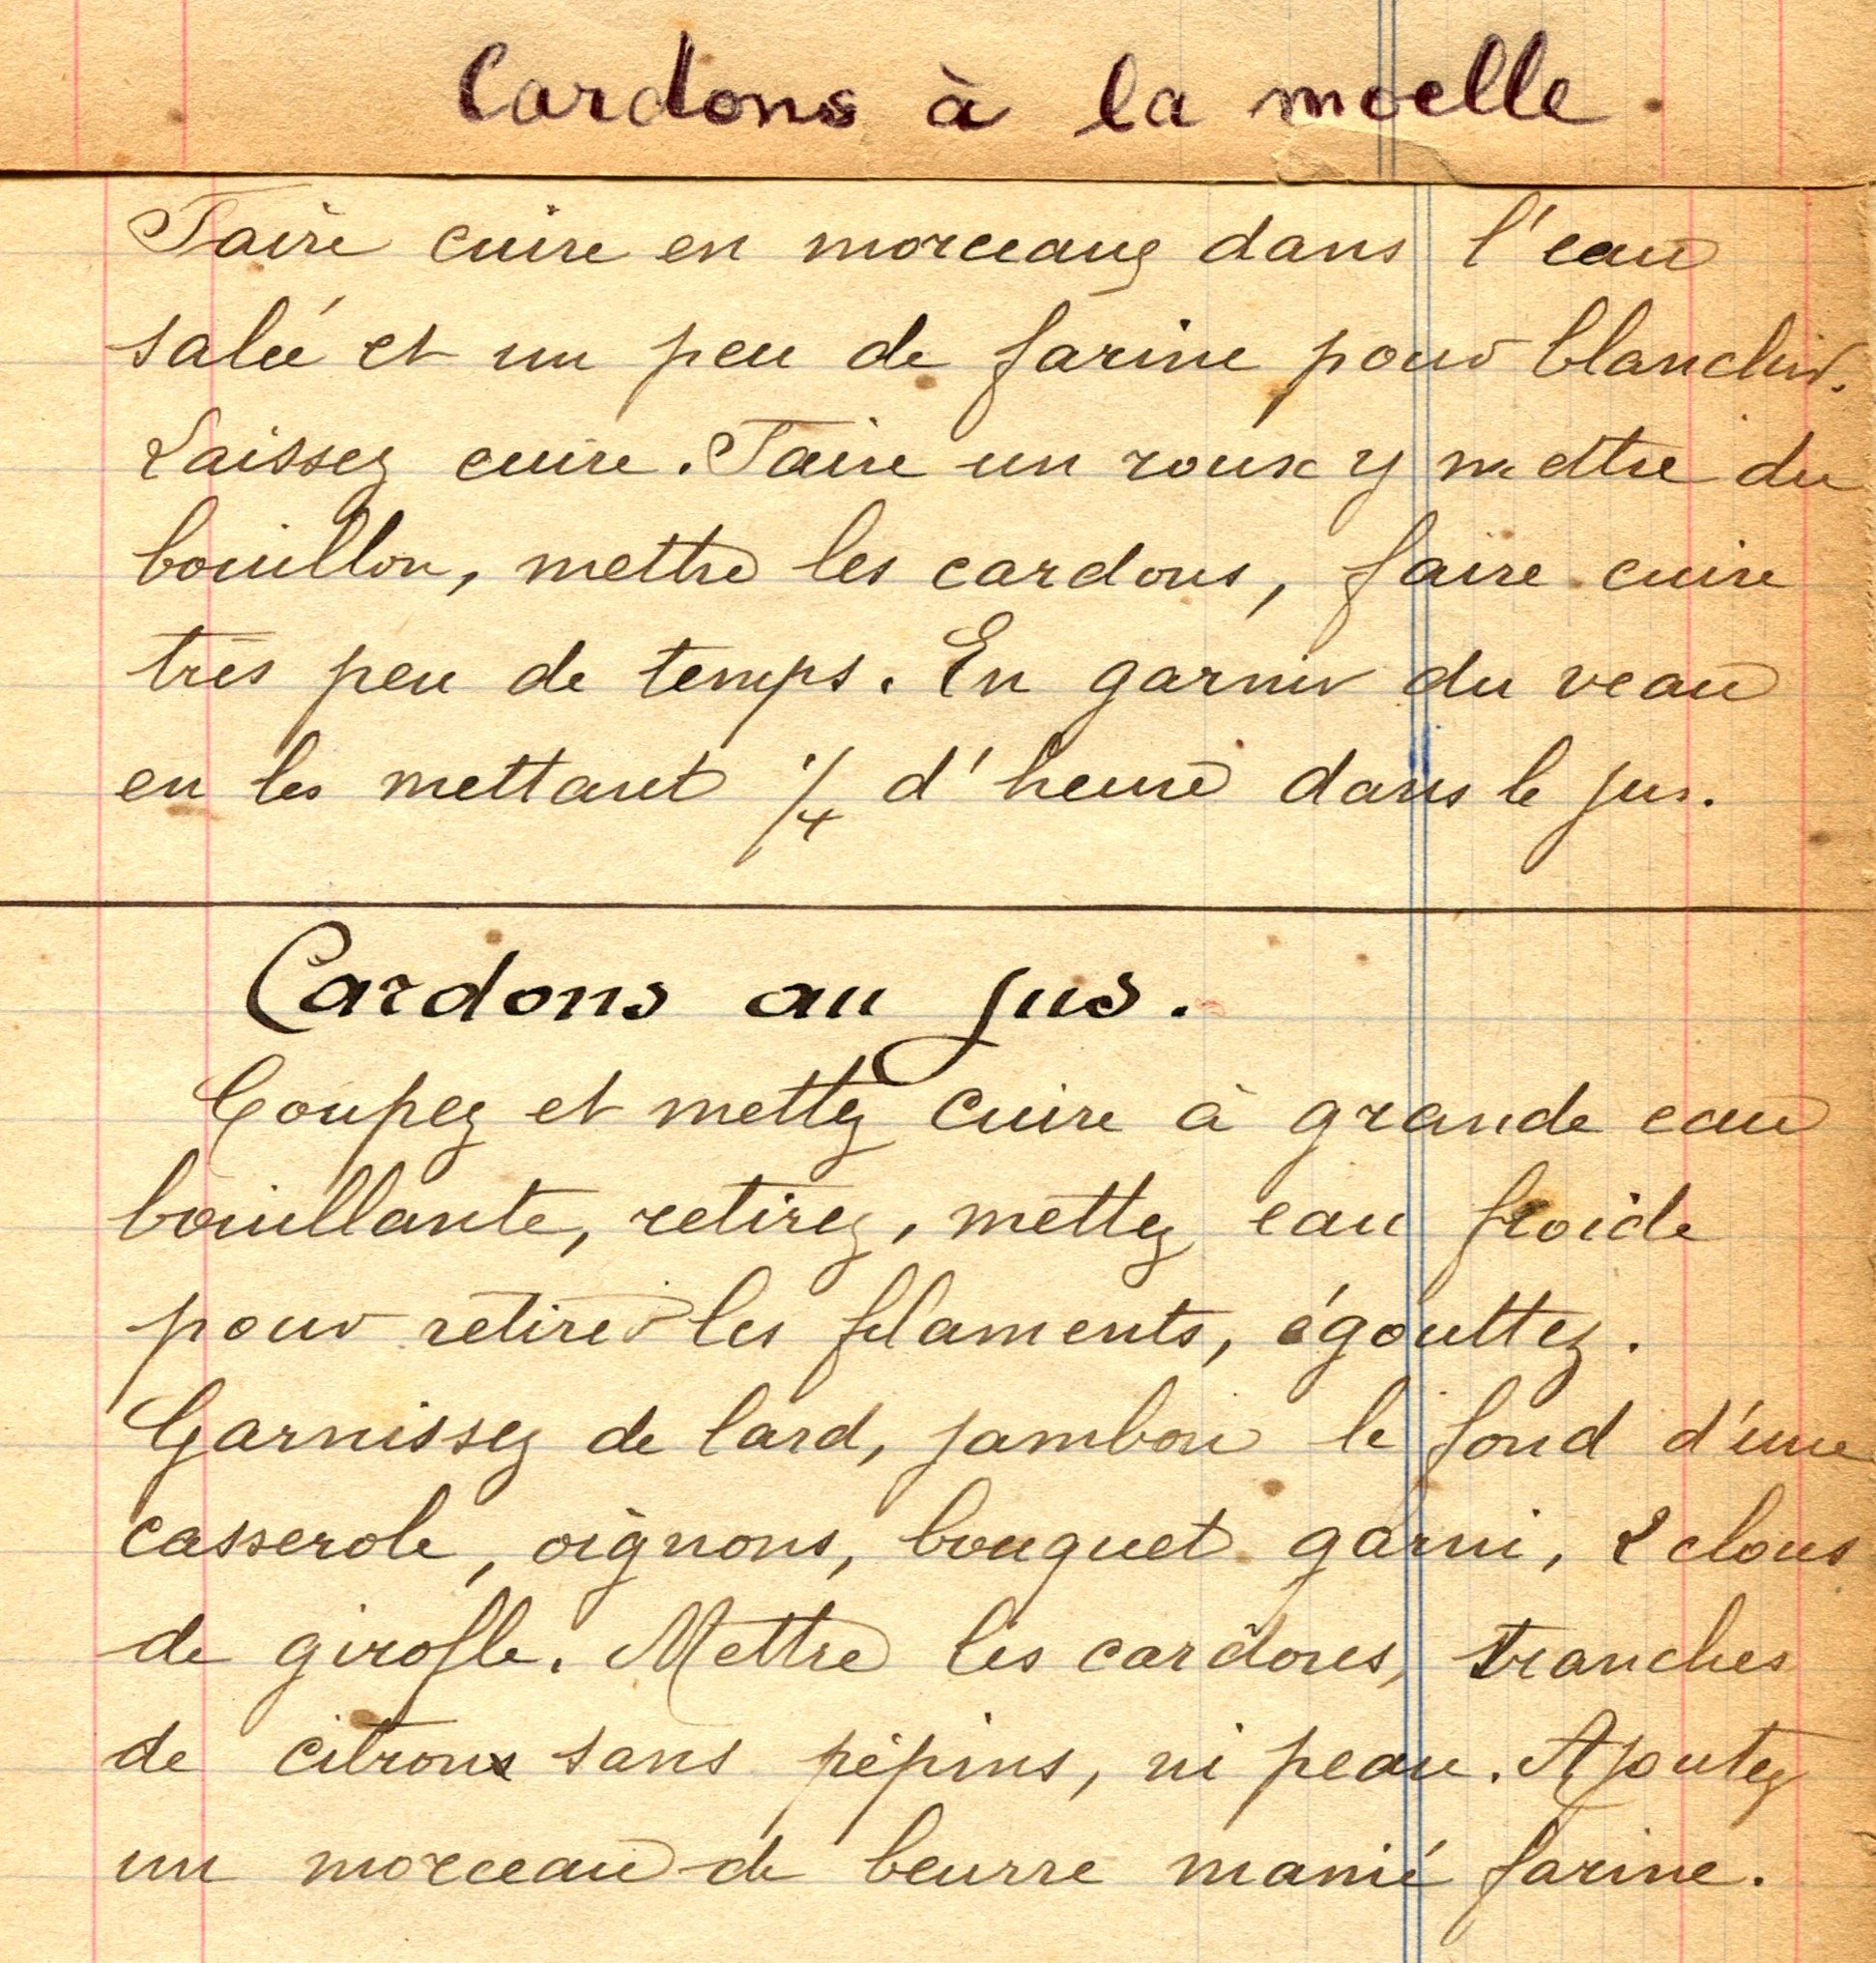 Cardons à la moelle.
Faire cuire en morceaux dans l'eau
salée et un peu de farine pour blanchir.
Laissez cuire. Faire un roux y mettre du
bouillon, mettre les cardons, faire cuire
très peu de temps. En garnir du veau
en les mettant 1/4 d'heure dans le jus.
Cardons au jus.
Coupez et mettez cuire à grande eau
bouillante, retirez, mettez eau froide
pour retirer les filaments, égouttez.
Garnissez de lard, jambon le fond d'une
casserole, oignons, bouquet garni, 2 clous
de girofle. Mettre les cardons, tranches
de citrons sans pépins, ni peau. Ajoutez
un morceau de beurre manié farine.